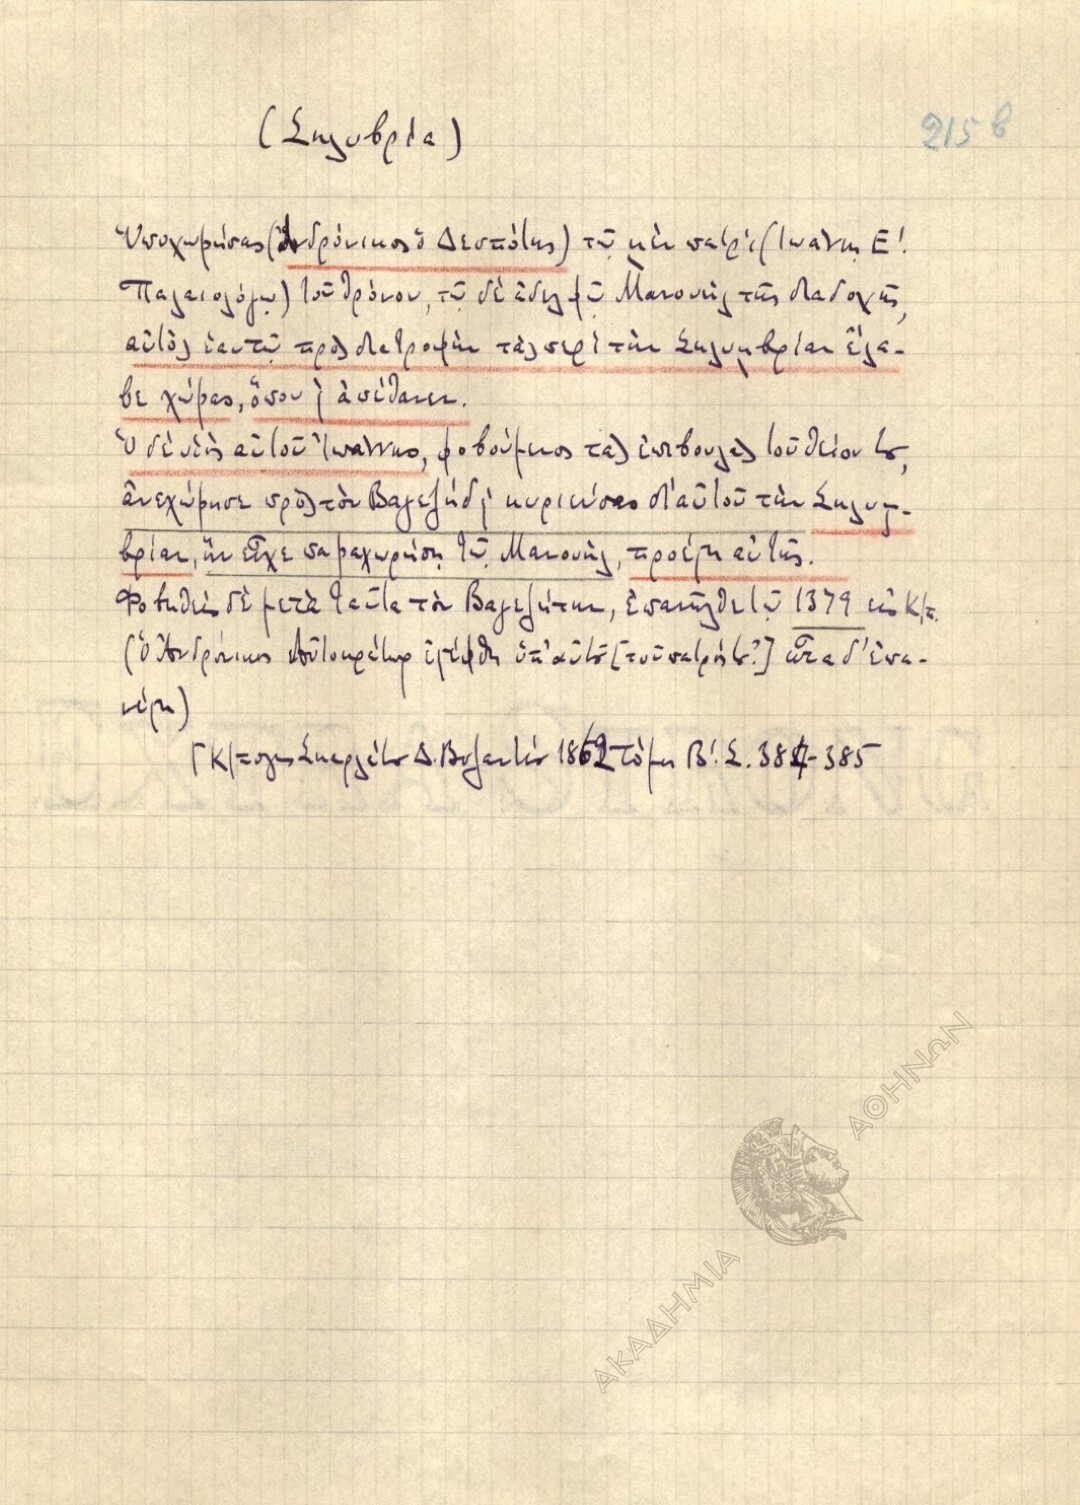 (Σηλυβρία)
215 β
Ὑποχωρήσας (Ἀνδρόνικος ὁ Δεσπότης) τῷ μὲν πατρὶ (Ἰωάννῃ Ε΄.
Παλαιολόγῳ) τοῦ θρόνου, τῷ δὲ ἀδελφῷ Μανουὴλ τῆς διαδοχῆς,
αὐτὸς ἑαυτῷ πρὸς διατροφὴν τὰς περὶ τὴν Σηλυμβρίαν ἔλα-
βε χώρας, ὅπου ἀπέθανεν.
Ὁ δὲ υἱὸς αὐτοῦ Ἰωάννης, φοβούμενος τὰς ἐπιβουλὰς τοῦ θείου του,
ἀνεχώρησε πρὸς τὸν Βαγεζὴδ κυριεύσας δι' αὐτοῦ τὴν Σηλυμ-
βρίαν, ἣν εἶχε παραχωρήσῃ τῷ Μανουὴλ, προέβη αὐτῆς.
Φοβηθεὶς δὲ μετὰ ταῦτα τὸν Βαγεζήτην, ἐπανῆλθε τῷ 1379 εἰς Κ/π.
(ὁ Ἀνδρόνικος Αὐτοκράτωρ ἐστέφθη ὑπ' αὐτοῦ [τοῦ πατρός του?] εἶτα δ' ἐπα-
νέβη)
Κ/πολις Σκαρλάτου Δ. Βυζαντίου 1862 τόμος Β΄. Σ. 384-385
ΑΚΑΔΗΜΙΑ ΑΘΗΝΩΝ